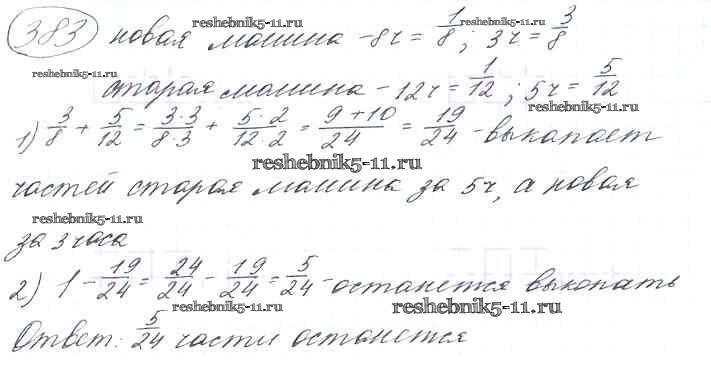 383 новая машина - 8ч = 1/8; 3ч = 3/8
старая машина - 12ч = 1/12; 5ч = 5/12
1) 3/8 + 5/12 = 3·3/8·3 + 5·2/12·2 = 9+10/24 = 19/24 - выкопает
частей старая машина за 5ч, а новая
за 3 часа
2) 1 - 19/24 = 24/24 - 19/24 = 5/24 - останется выкопать
Ответ: 5/24 части останется
reshebnik5-11.ru
reshebnik5-11.ru
reshebnik5-11.ru
reshebnik5-11.ru
reshebnik5-11.ru
reshebnik5-11.ru
reshebnik5-11.ru
reshebnik5-11.ru
reshebnik5-11.ru